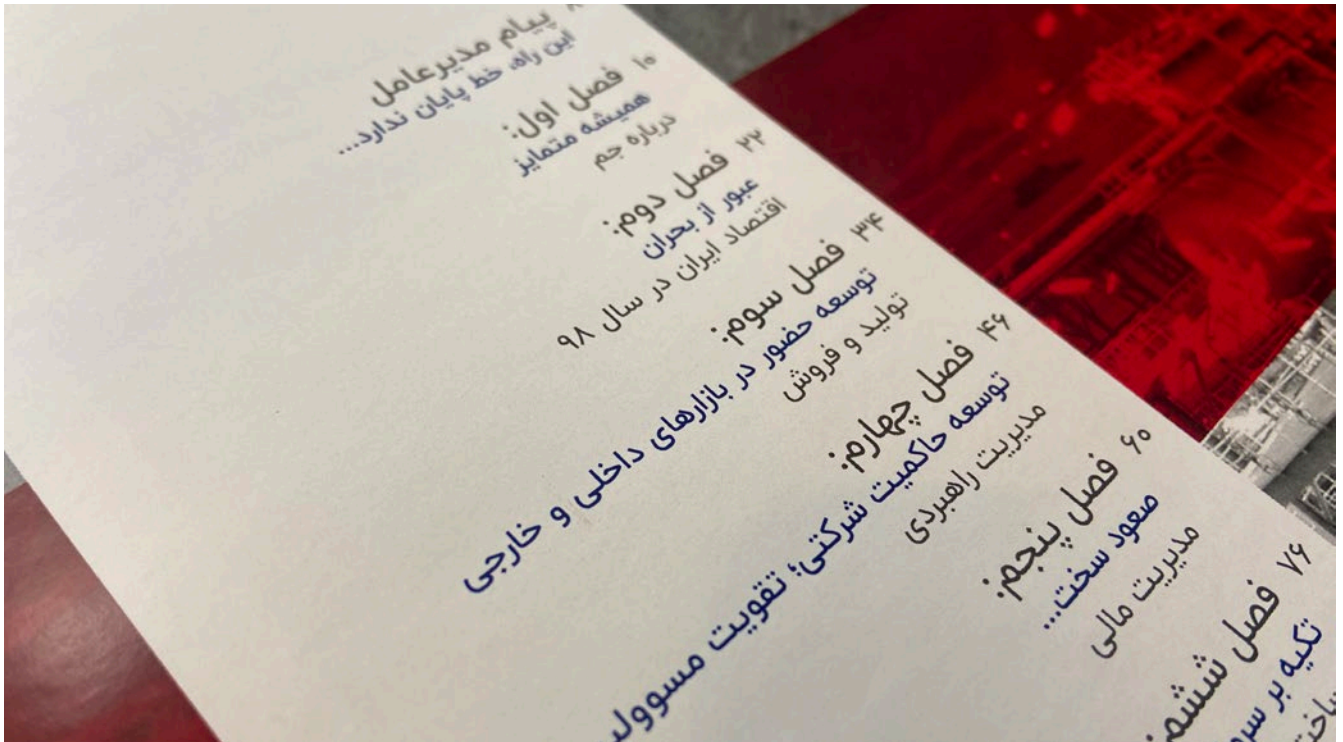 پیام مدیرعامل
این راه، خط پایان ندارد...
۱۰ فصل اول:
همیشه متمایز
درباره جم
۲۲ فصل دوم:
عبور از بحران
اقتصاد ایران در سال ۹۸
۳۴ فصل سوم:
توسعه حضور در بازارهای داخلی و خارجی
تولید و فروش
۴۶ فصل چهارم:
توسعه حاکمیت شرکتی؛ تقویت
مدیریت راهبردی
۶۰ فصل پنجم:
صعود سخت...
مدیریت مالی
۷۶ فصل ششم:
تکیه بر